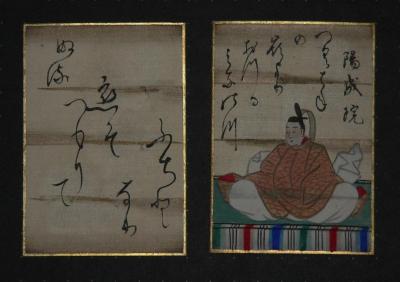 陽成院
つくはね
の
峯より
おつる
みなの川
恋そ
つもりて
ふちと
なり
ぬる